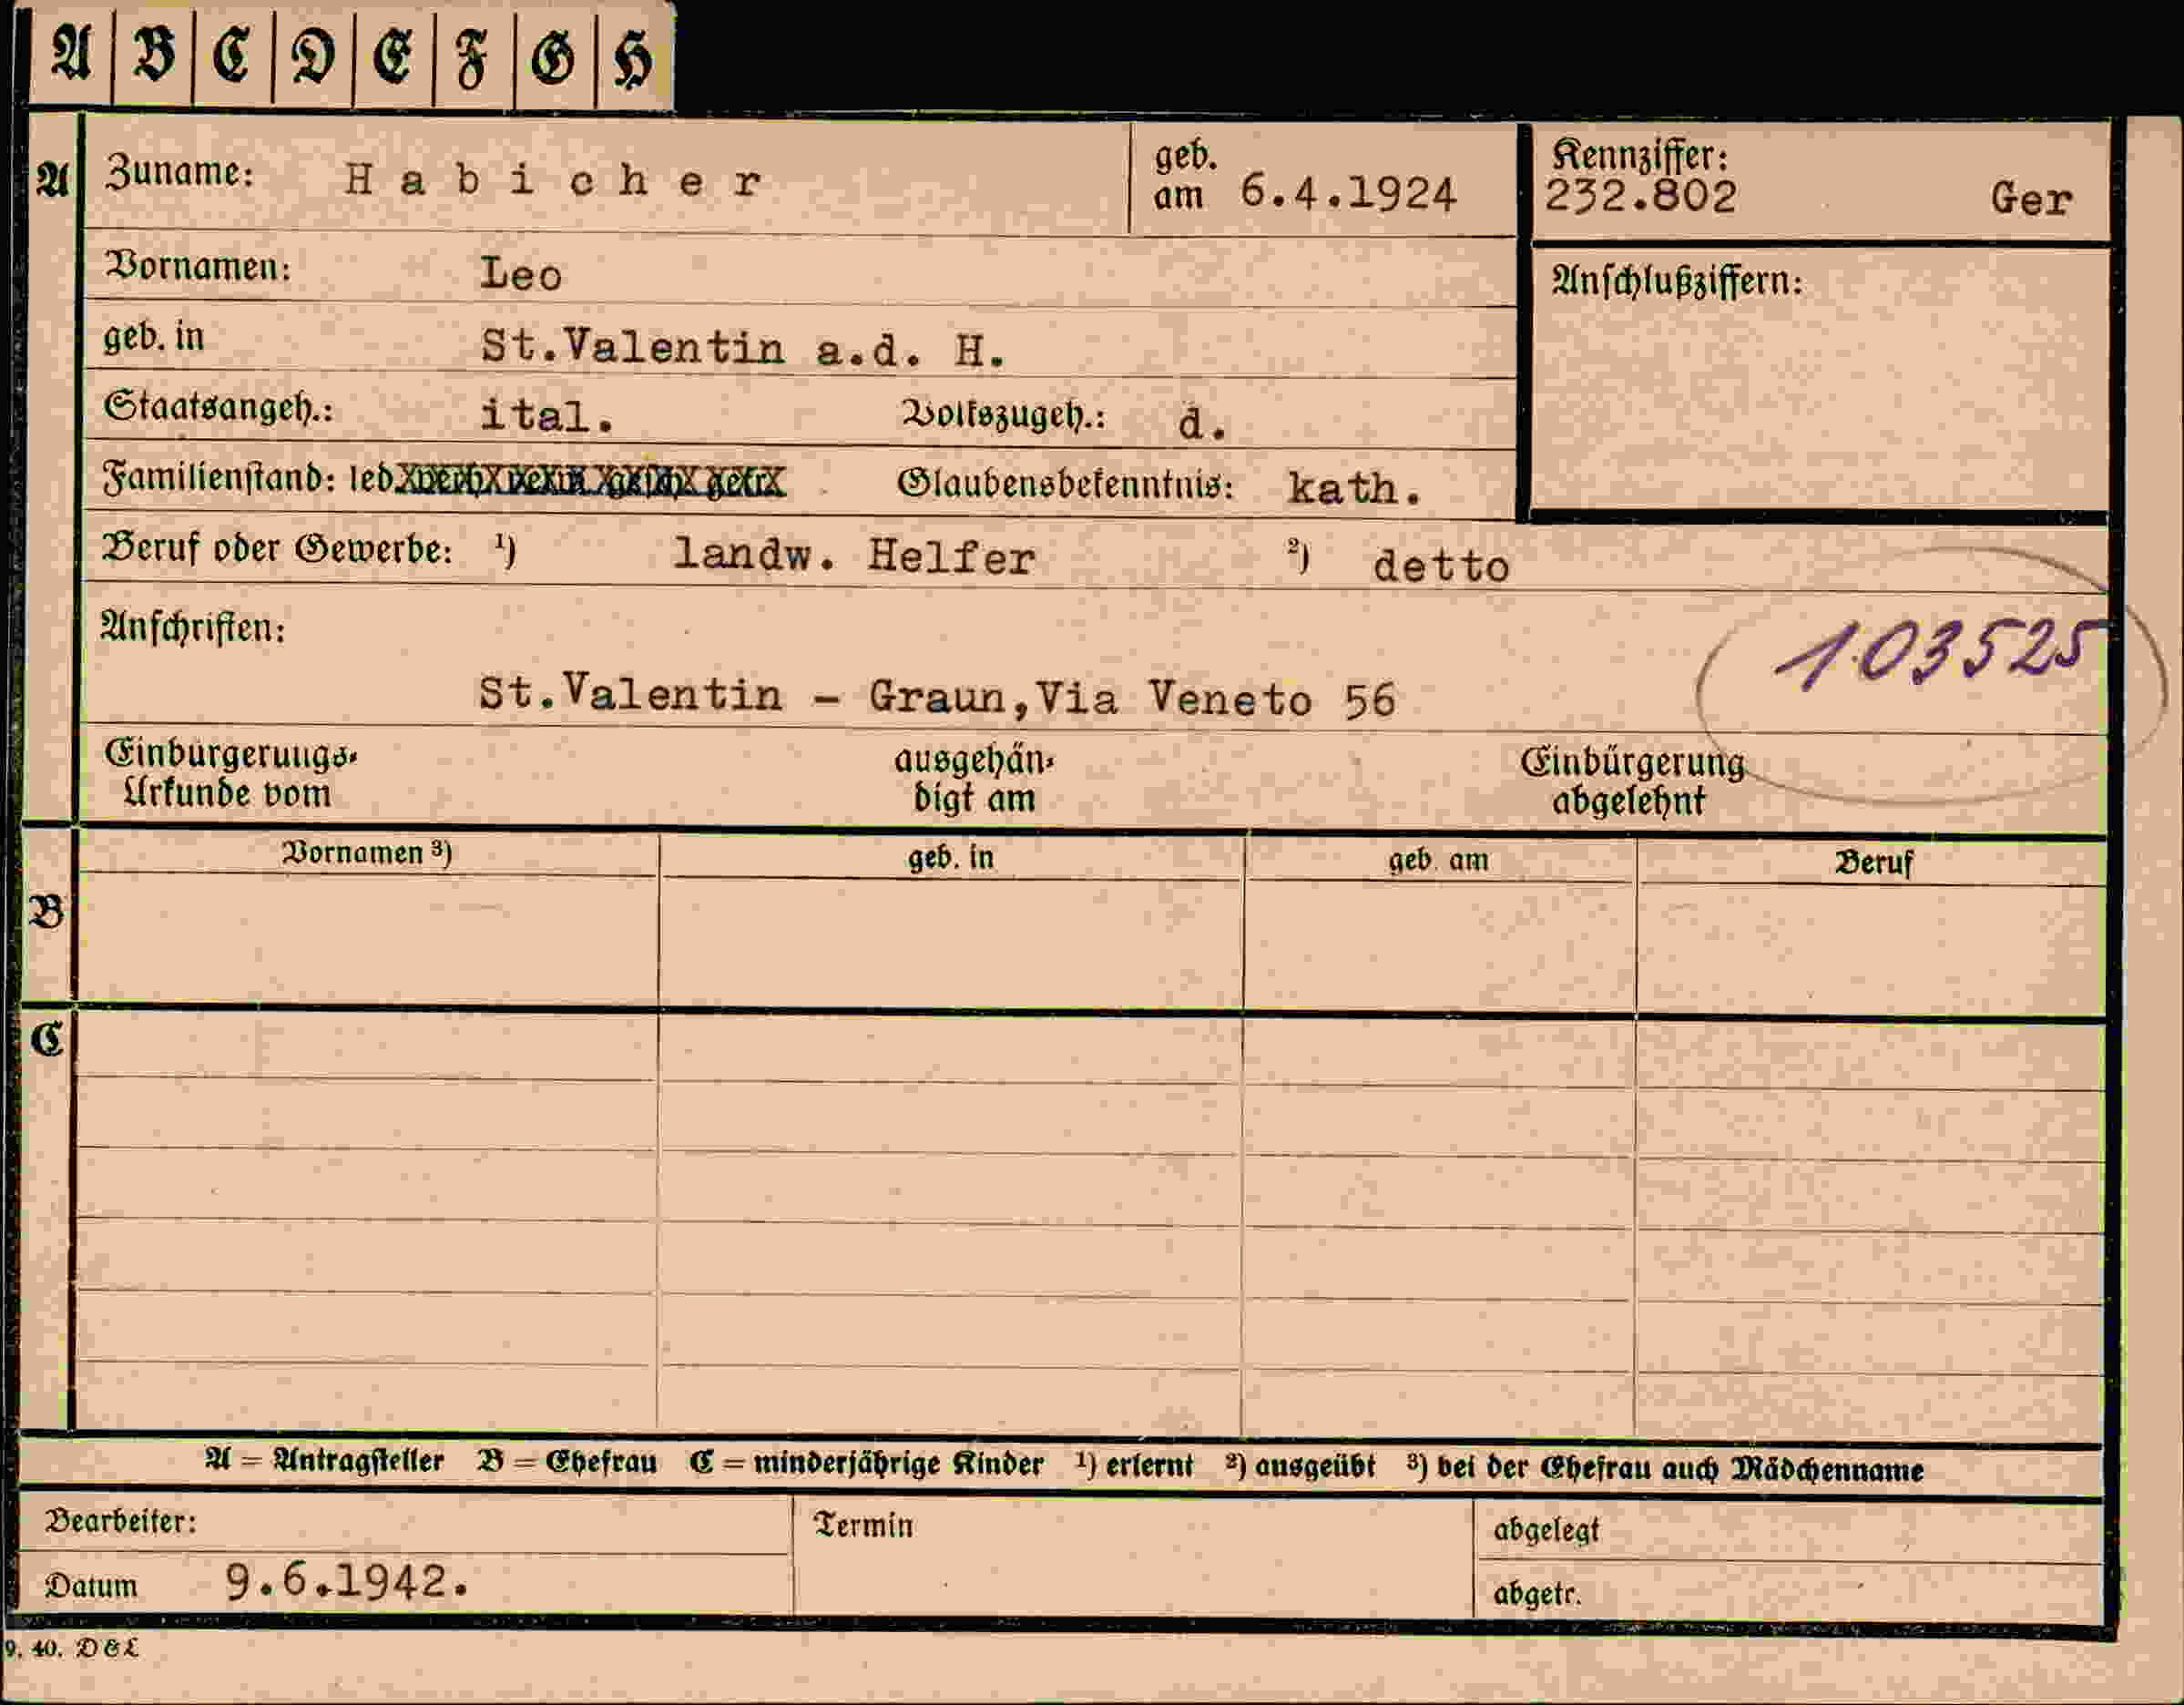 A B C D E F G H
A Zuname: Habicher geb. am 6.4.1924 Kennziffer: 232.802 Ger
Vornamen: Leo Anschlußziffern:
geb. in St.Valentin a.d. H.
Staatsangeh.: ital. Volkszugeh.: d.
Familienstand: led. Glaubensbekenntnis: kath.
Beruf oder Gewerbe: ¹) landw. Helfer ²) detto
Anschriften: 103525
St.Valentin - Graun,Via Veneto 56
Einbürgerungs- ausgehän- Einbürgerung
Urkunde vom digt am abgelehnt
Vornamen ³) geb. in geb. am Beruf
B
C
A = Antragsteller B = Ehefrau C = minderjährige Kinder ¹) erlernt ²) ausgeübt ³) bei der Ehefrau auch Mädchenname
Bearbeiter: Termin abgelegt
Datum 9.6.1942. abgetr.
9. 40. D&L